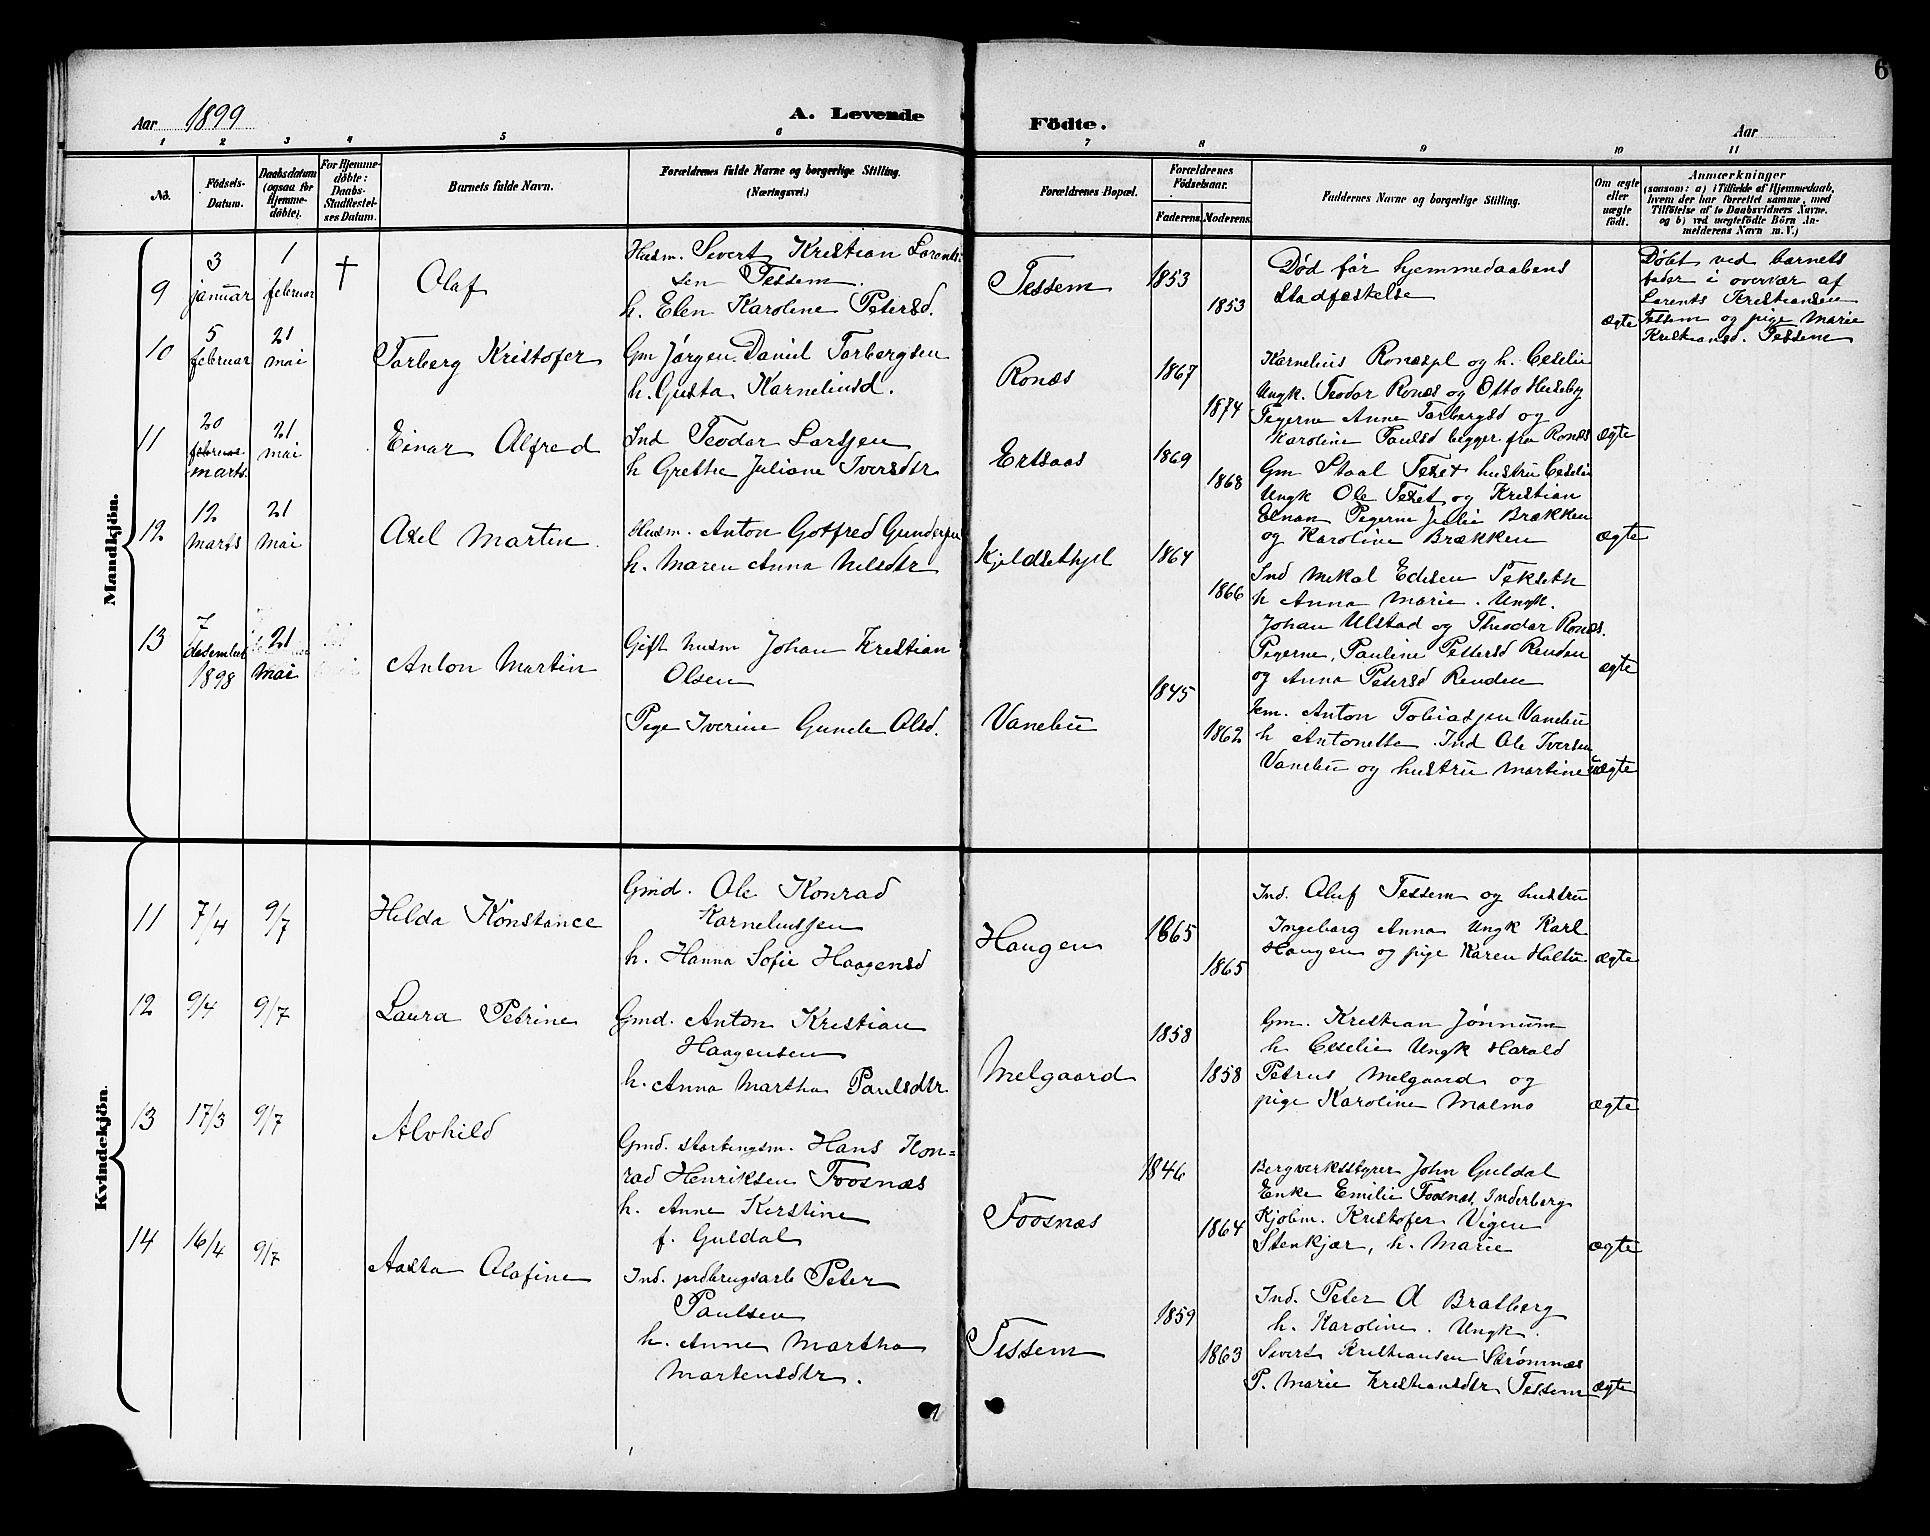 6
Aar 1899
A. Levende
Födte.
Aar
1 2 3 4 5 6 7 8 9 10 11
No.
Födsels-Datum.
Daabsdatum (ogsaa for Hjemmedöbte).
For Hjemmedöbte: Daabs-Stadfestelses Datum.
Barnets fulde Navn.
Forældrenes fulde Navne og borgerlige Stilling.
(Næringsvei.)
Forældrenes Bopæl.
Forældrenes Födselsaar.
Faderens. Moderens.
Faddernes Navne og borgerlige Stilling.
Om ægte eller uægte födt.
Anmærkninger
(saasom: a) i Tilfælde af Hjemmedaab,
hvem der har forrettet samme, med
Tilföielse af to Daabsvidners Navne,
og b) ved uægtefödte Börn An-
melderens Navn m. V.)
Mandkjön.
9
3 januar
1 februar
†
Olaf
Husm. Sivert Kristian Lorent-
sen Tessem.
h. Elen Karoline Petersd.
Tessem
1853
1853
Død før hjemmedaabens
Stadfæstelse
ægte
Døbt ved barnets
fader i overvær af
Lorents Kristiansen
Tessem og pige Marie
Kristiansd. Tessem
10
5 februar
21 mai
Torberg Kristofer
Gm Jørgen Daniel Torbergsen
h. Gusta Karneliusd.
Ronæs
1867
1874
Karnelius Ronæspl og h. Ceselie
Ungk. Teodor Ronæs og Otto Huseby
Pigerne Anne Torbergsd og
Karoline Paulsd begge fra Ronæs
ægte
11
20 februar marts.
21 mai
Einar Alfred
Ind Teodor Larsen
h Grethe Juliane Iversdtr
Ertsaas
1869
1868
Gm Staal Teset hustru Ceselie
Ungk Ole Teset og Kristian
Elnan Pigerne Julie Brækken
og Karoline Brækken
ægte
12
12 marts
21 mai
Axel Martin
Husm. Anton Gotfred Gundersen
h. Maren Anna Nelsdtr
Kjeldsethpl
1864
1866
Ind Mekal Edisen Tekseth
h Anna Marie. Ungk.
Johan Ulstad og Theodor Ronæs.
Pigerne, Pauline Pettersd Renden
og Anna Petersd Renden
ægte
13
7 desember 1898
21 mai
Anton Martin
Gift husm Johan Kristian
Olsen
Pige Iverine Gunele Olsd.
Vanebu
1845
1862
Gm. Anton Tobiassen Vanebu
h Antonette. Ind Ole Iversen
Vanebu og hustru Martine
uægte
Kvindekjön.
11
7/4
9/7
Hilda Konstance
Gmd. Ole Konrad
Karneliussen
h. Hanna Sofie Haagensd
Haugen
1865
1865
Ind. Oluf Tessem og hustru
Ingeborg Anna Ungk Karl
Haugen og pige Karen Holtu
ægte
12
9/4
9/7
Laura Petrine
Gmd. Anton Kristian
Haagensen
h. Anna Martha Paulsdtr
Melgaard
1858
1858
Gm. Kristian Jønnum
h Ceselie Ungk Harald
Petrus Melgaard og
pige Karoline Malmo
ægte
13
17/3
9/7
Alvhild
Gmd. stortingsm. Hans Kon=
rad Henriksen Foosnæs
h. Anne Kirstine
f. Guldal
Foosnæs
1846
1864
Bergverksstyrer John Guldal
Enke Emilie Foosnæs, Inderberg
Kjøbm. Kristofer Vigen
Stenkjær, h. Marie
ægte
14
16/4
9/7
Aasta Olafine
Ind. jordbrugsarb Peter
Paulsen
h. Anne Martha
Martensdtr.
Tessem
1859
1863
Ind. Peter A Bratberg
h. Karoline. Ungk.
Sivert Kristiansen Strømnæs
P. Marie Kristiansdtr Tessem
ægte